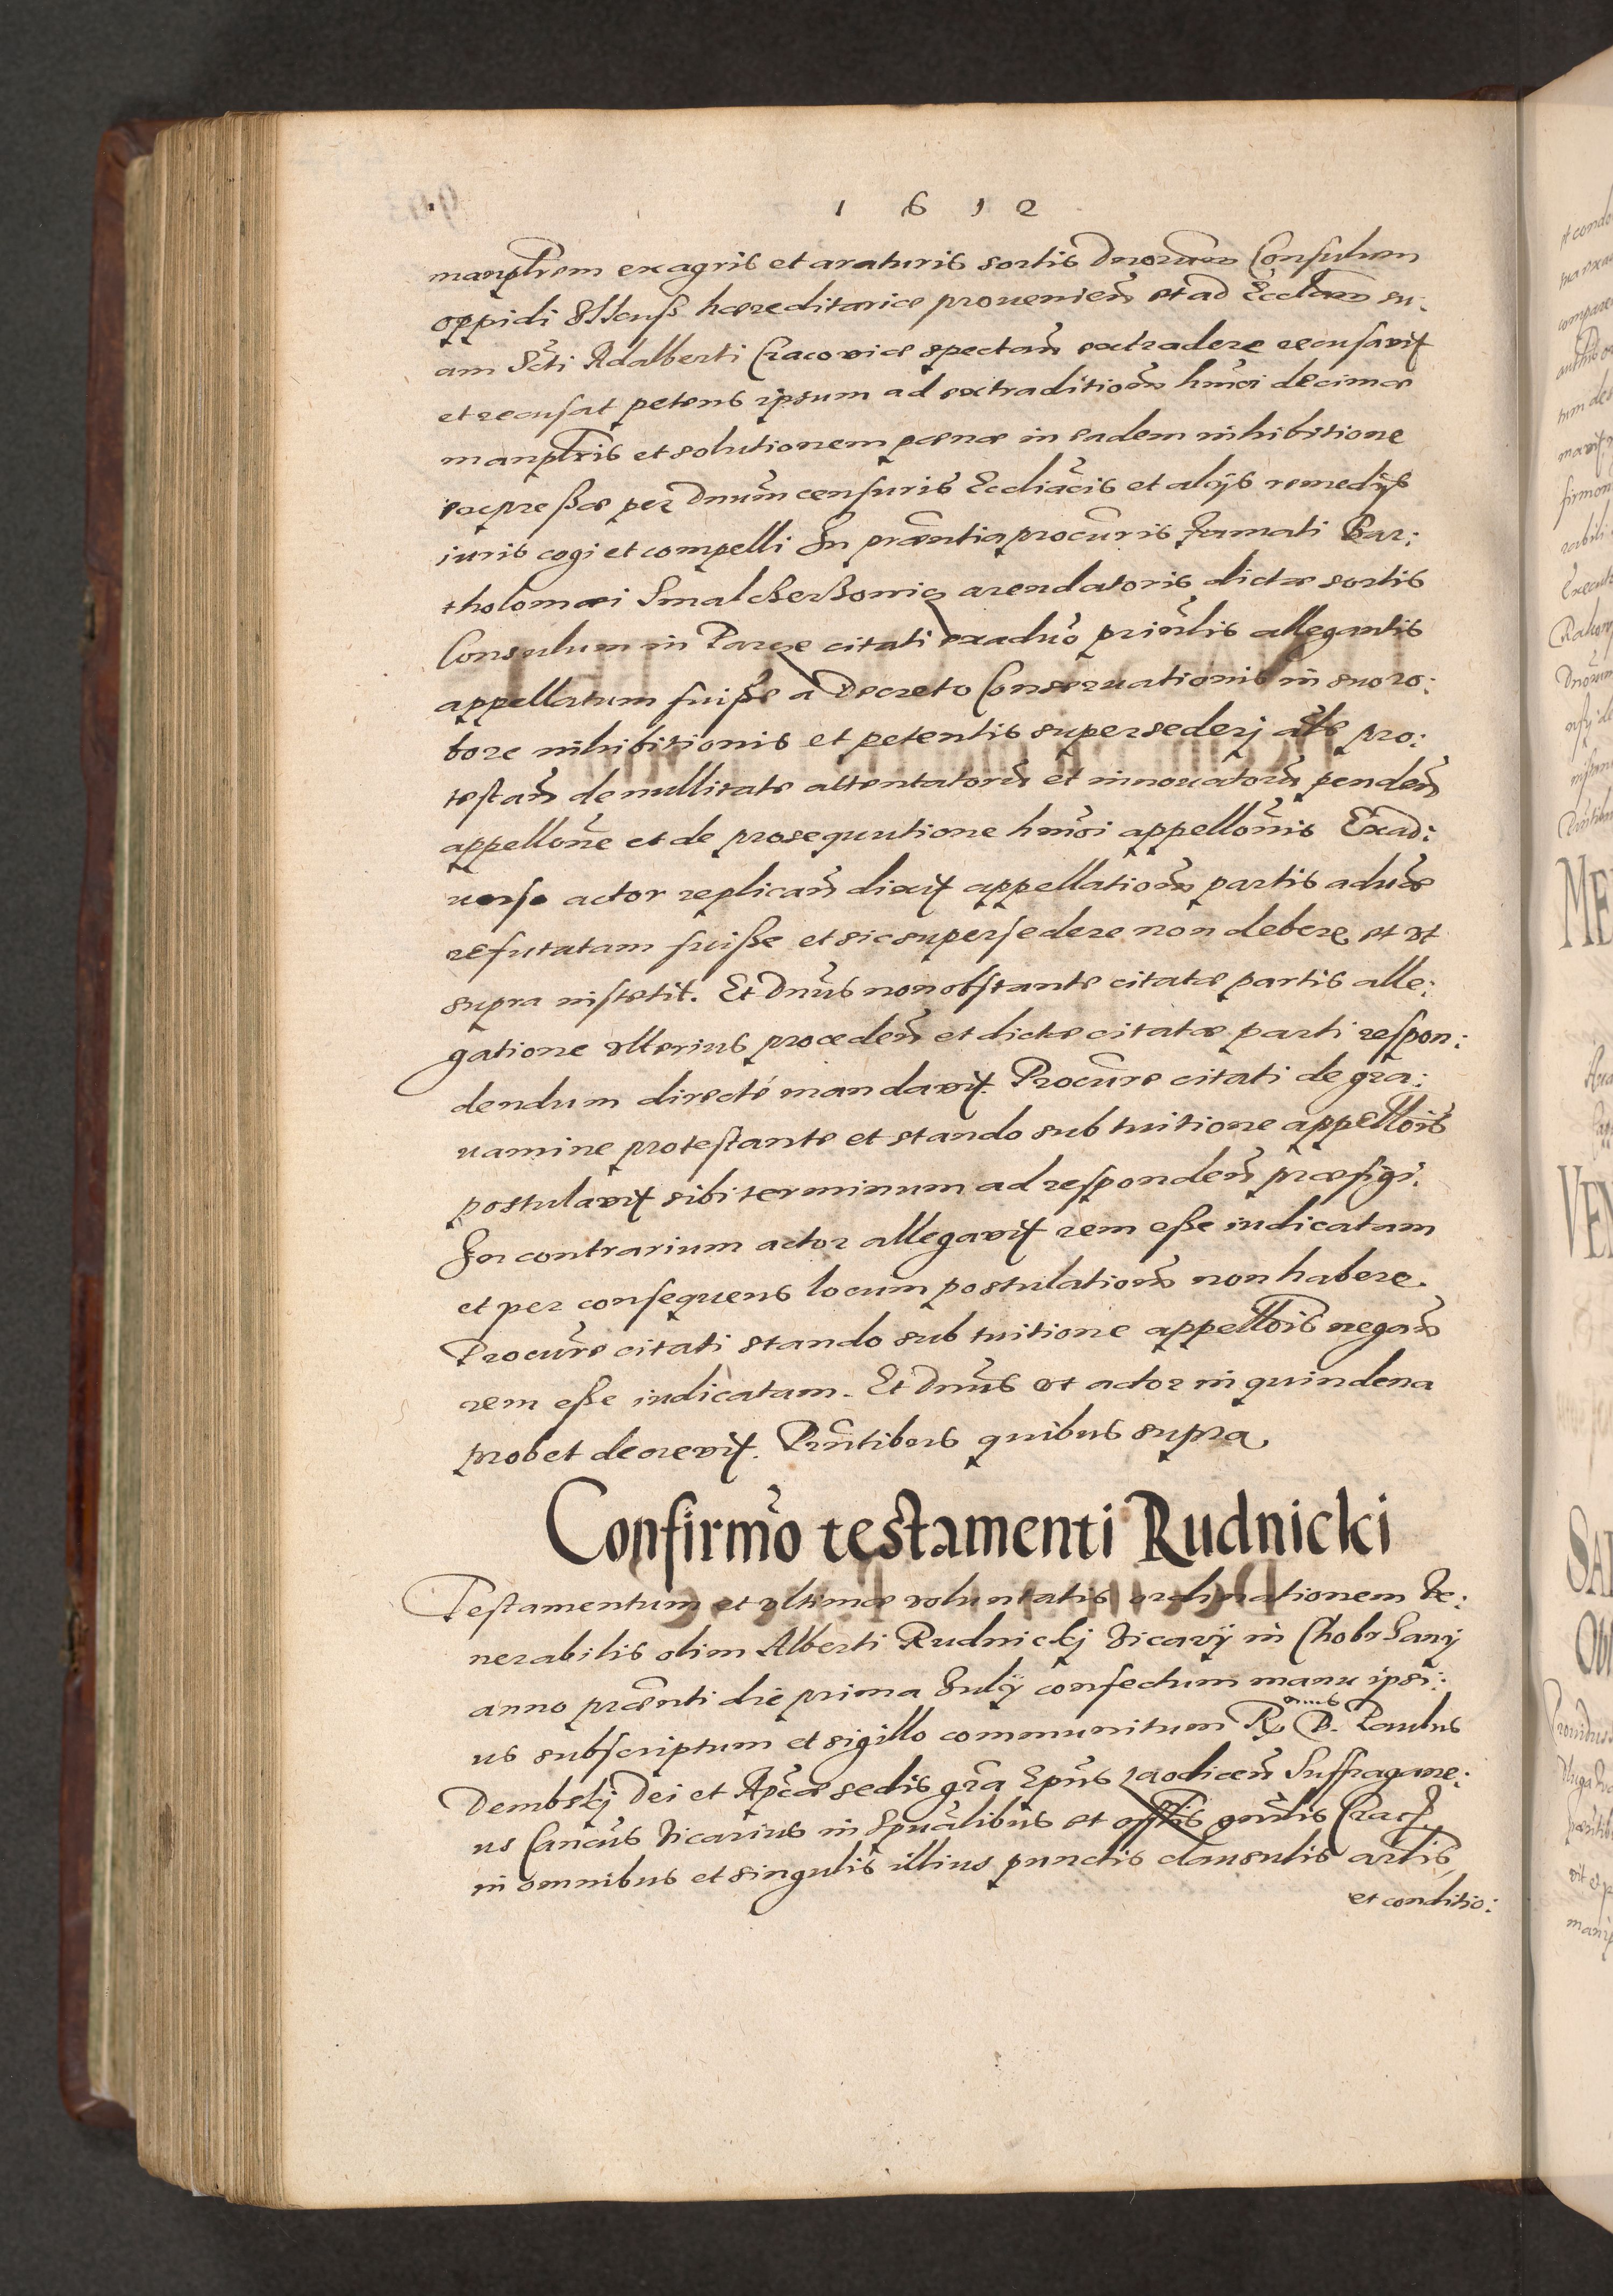 1612
manplrem ex agris et araturis sortis Dnorum Consulum
oppidi Ilkuss. hæreditariæ provenien̄ et ad Eccl̄am su:
am Scti Adalberti Cracoviæ spectan̄ extradere recusavit
et recusat petens ipsum ad extraditionem hmōi decimæ
manplris et solutionem pœnæ in eadem inhibitione
expressæ per Dnum censuris Ecclīacis et alijs remedijs
iuris cogi et compelli In præntia procuris famati Bar:
tholomæi arendatoris dictæ sortis
Consulum in Parcze citati ex adūo prinlis allegantis
appellatum fuisse a Decreto Conservationis in suo ro:
bore inhibitionis et petentis supersederj als pro:
testan̄ de nullitate attentatorū et innovatorū penden̄
appellone et de prosequutione hmōi appellonis Exad:
verso actor replican̄ dixit appellationem partis advæ
refutatam fuisse et sic supersedere non debere et ut
supra institit. Et Dnūs non obstante citatæ partis alle:
gatione ulterius proceden̄ et dictæ citatæ parti respon:
dendum directé mandavit. Procūre citati de gra:
vamine protestante et stando sub tuitione appellois
postulavit sibi terminum ad responden̄ præfigi.
In contrarium actor allegavit rem esse iudicatam
et per consequens locum postulationem non habere.
Procūre citati stando sub tuitione appellois negan̄
rem esse iudicatam. Et Dnūs ut actor in quindena
probet decrevit. Prn̄tibus quibus supra
Confirmō testamenti Rudnicki
Testamentum et ultimæ voluntatis ordinationem Ve:
nerabilis olim Alberti Rudnickj Vicarij in Chobrzanj
anno præn̄ti die prima Julij confectum manu ipsi:
us subscriptum et sigillo communitum R. D. Paulus
Dembskj Dei et Ap̄cæ sedis gr̄a Ep̄us Laodicen̄ Suffragane:
us Cancūs Vicarius in Spuālibus et offlis gnralis Crac̄.
in omnibus et singulis illius punctis clausulis artlis
et conditio: